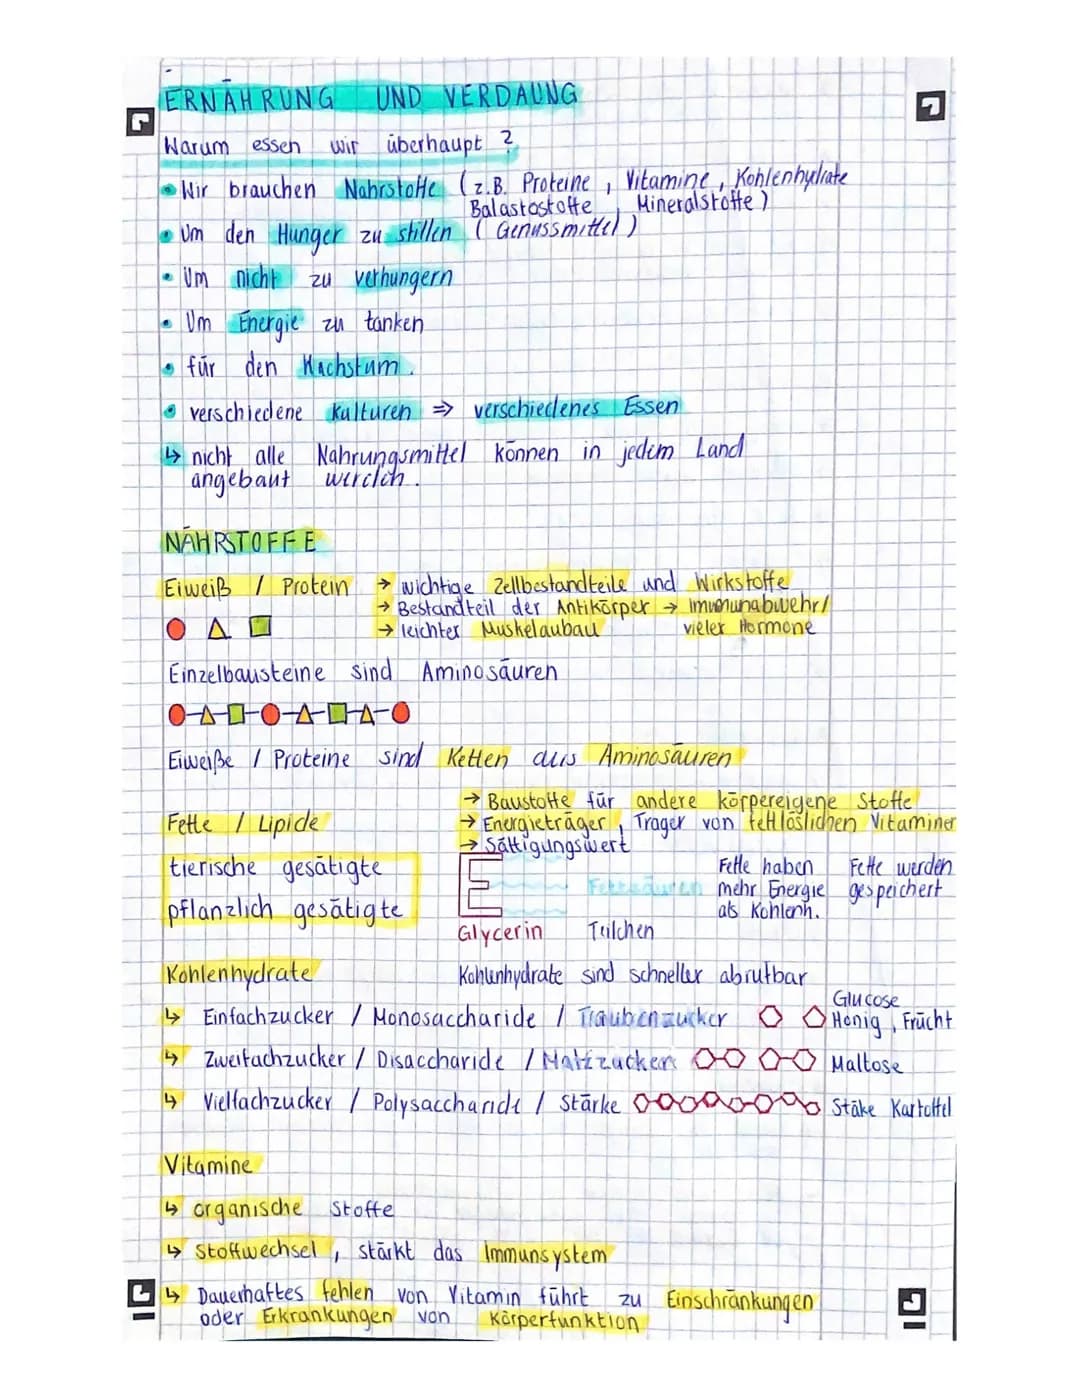 ERNÄHRUNG UND VERDAUNG
Warum essen wir überhaupt ?
• Wir brauchen Nährstoffe (z.B. Proteine , Vitamine , Kohlenhydrate
Balastostoffe , Mineralstoffe )
• Um den Hunger zu stillen ( Genussmittel )
• Um nicht zu verhungern
• Um Energie zu tanken
• für den Wachstum .
• verschiedene Kulturen => verschiedenes Essen
↳ nicht alle Nahrungsmittel können in jedem Land
angebaut werden .
NÄHRSTOFFE
Eiweiß / Protein → wichtige Zellbestandteile und Wirkstoffe
→ Bestandteil der Antikörper → Immunabwehr/
→ leichter Muskelaubau vieler Hormone
Einzelbausteine sind Aminosäuren
Eiweiße / Proteine sind Ketten aus Aminosäuren
→ Baustoffe für andere körpereigene Stoffe
Fette / Lipide → Energieträger , Träger von fettlöslichen Vitaminer
→ Sättigungswert
tierische gesätigte Fette haben Fette werden
Fettsäuren mehr Energie gespeichert
pflanzlich gesätigte als Kohlenh.
Glycerin Teilchen
Kohlenhydrate Kohlenhydrate sind schneller abrufbar
Glucose
↳ Einfachzucker / Monosaccharide / Traubenzucker Honig , Frücht
↳ Zweifachzucker / Disaccharide / Malzzucker Maltose
↳ Vielfachzucker / Polysaccharide / Stärke Stäke Kartoffel
Vitamine
↳ organische Stoffe
↳ Stoffwechsel , stärkt das Immunsystem
↳ Dauerhaftes fehlen von Vitamin führt zu Einschränkungen
oder Erkrankungen von Körperfunktion